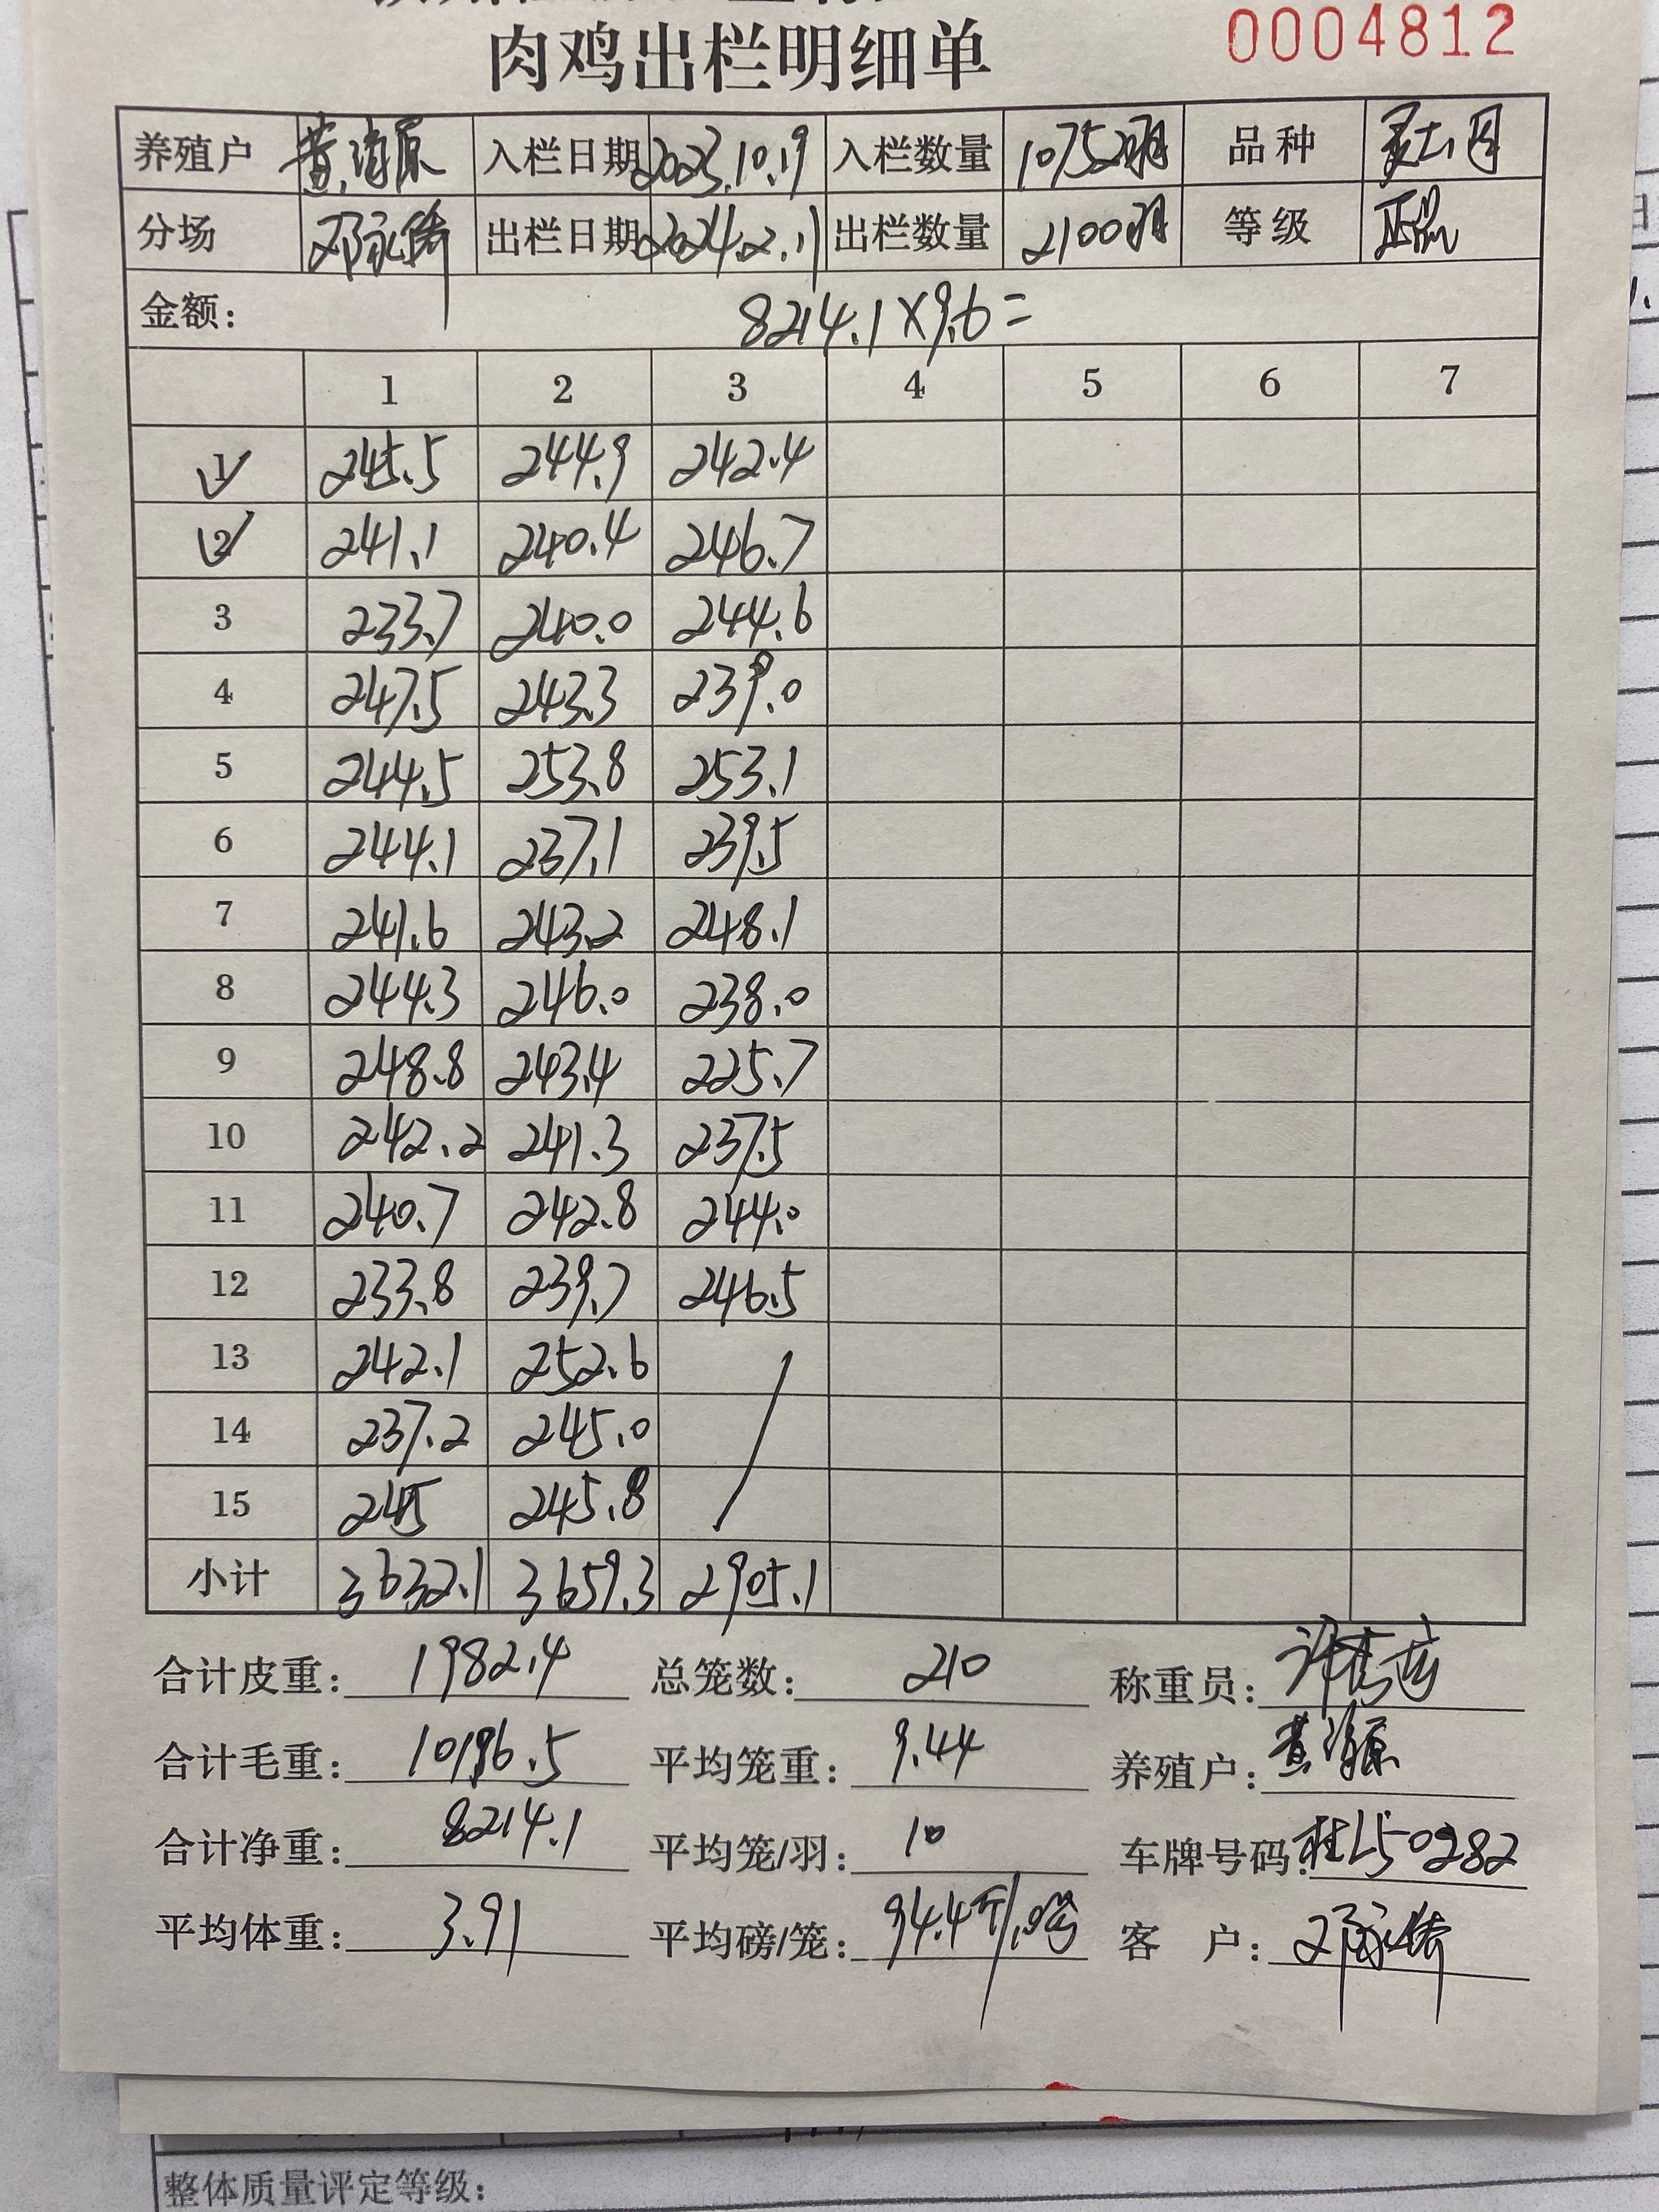 肉鸡出栏明细单 0004812
养殖户 黄海原 入栏日期 2023.10.19 入栏数量 10752羽 品种
分场 邓永倚 出栏日期 2024.2.11 出栏数量 2100羽 等级 正品
金额: 8214.1×9.6=
1 2 3 4 5 6 7
1 245.5 244.9 242.4
2 241.1 240.4 246.7
3 233.7 240.0 244.6
4 247.5 243.3 239.0
5 244.5 253.8 253.1
6 244.1 237.1 239.5
7 241.6 243.2 248.1
8 244.3 246.0 238.0
9 248.8 243.4 225.7
10 242.2 241.3 237.5
11 240.7 242.8 244.0
12 233.8 239.7 246.5
13 242.1 252.6
14 237.2 245.0
15 245 245.8
小计 3632.1 3659.3 2905.1
合计皮重: 1982.4 总笼数: 210 称重员:
合计毛重: 10196.5 平均笼重: 9.44 养殖户:
合计净重: 8214.1 平均笼/羽: 10 车牌号码: 桂L50282
平均体重: 3.91 平均磅/笼: 94.4斤/磅 客户:
整体质量评定等级: